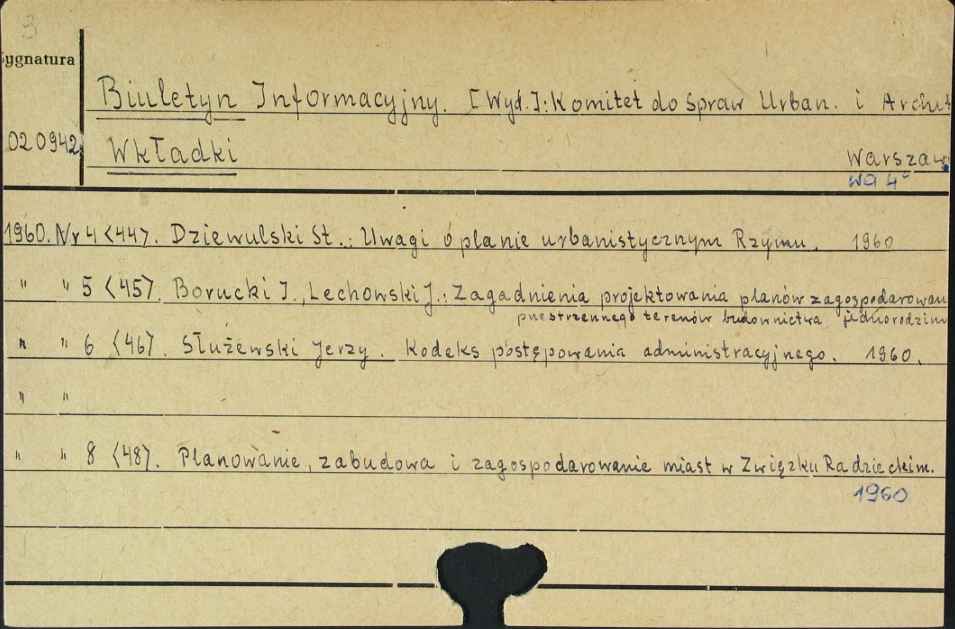 3
Sygnatura
Biuletyn Informacyjny. [Wyd.]: Komitet do Spraw Urban. i Archit
020942
Wkładki
Warszaw
wa 4°
1960. Nr 4 <44>. Dziewulski St.: Uwagi o planie urbanistycznym Rzymu. 1960
" " 5 <45>. Borucki J., Lechowski J.: Zagadnienia projektowania planów zagospodarowan
przestrzennego terenów budownictwa jednorodzin
" " 6 <46>. Służewski Jerzy. Kodeks postępowania administracyjnego. 1960.
" "
" " 8 <48>. Planowanie, zabudowa i zagospodarowanie miast w Związku Radzieckim.
1960